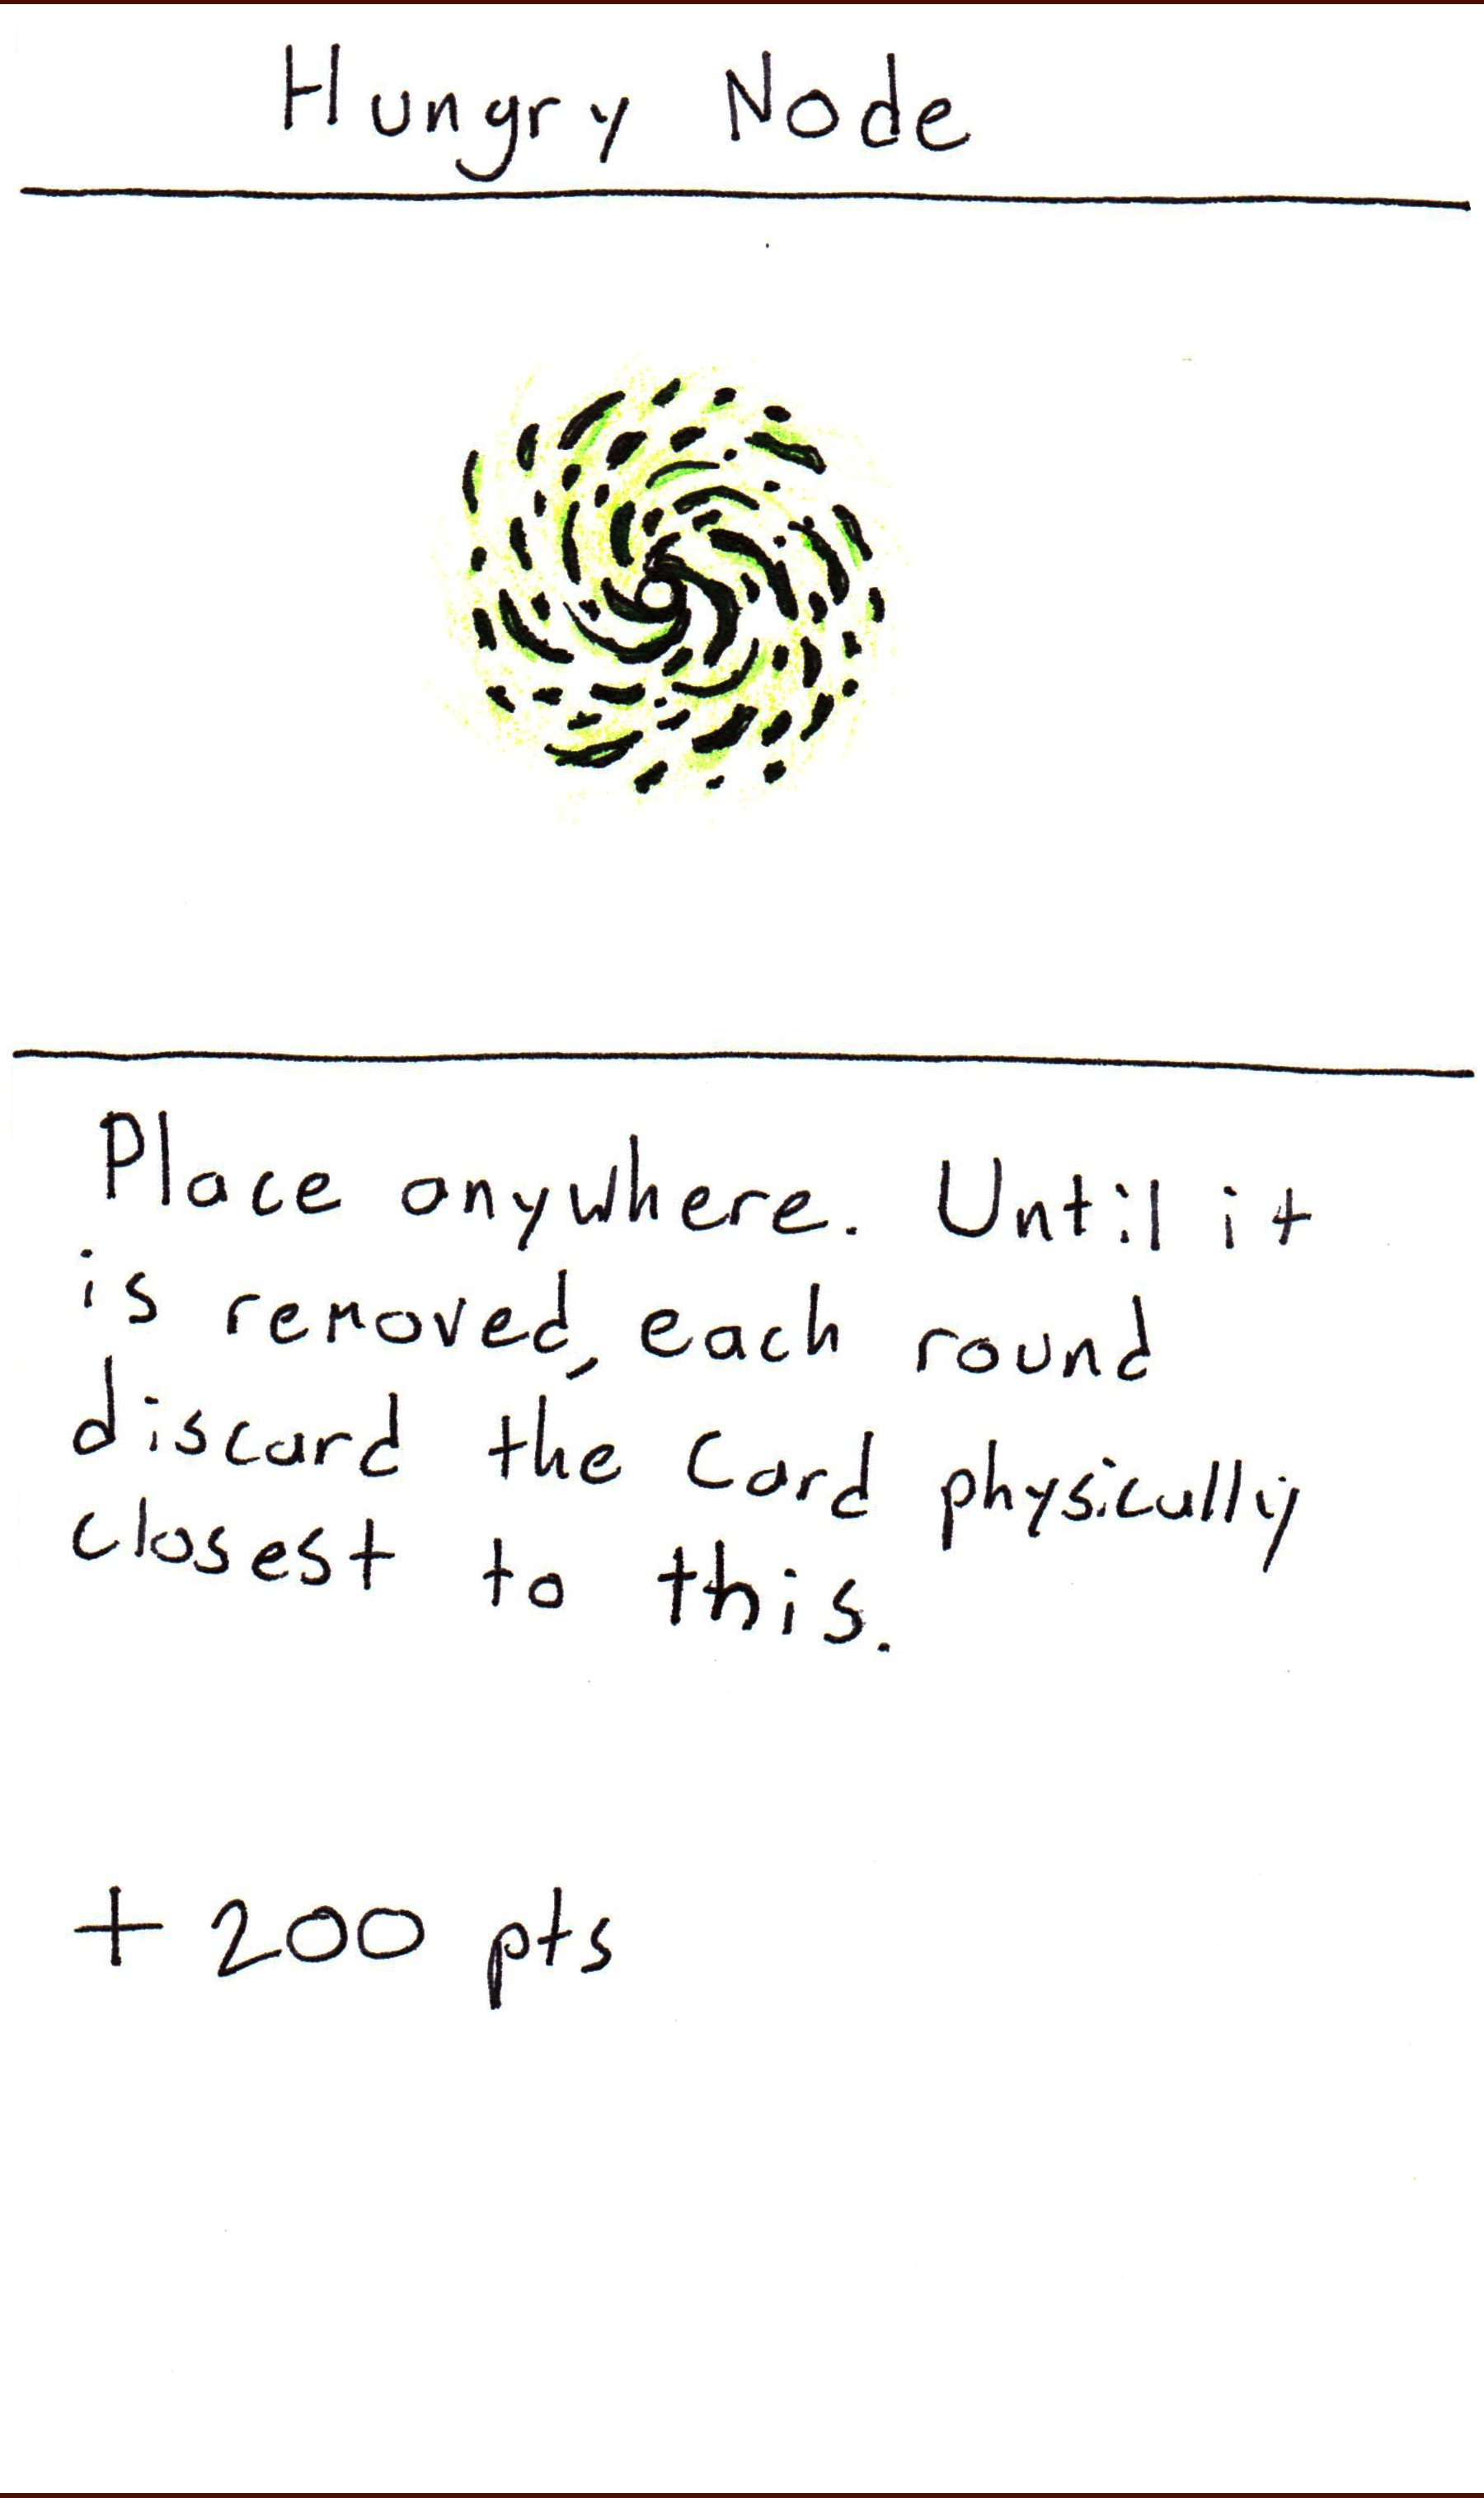 Hungry Node
Place anywhere. Until it
is removed, each round
discard the Card physically
closest to this.
+ 200 pts